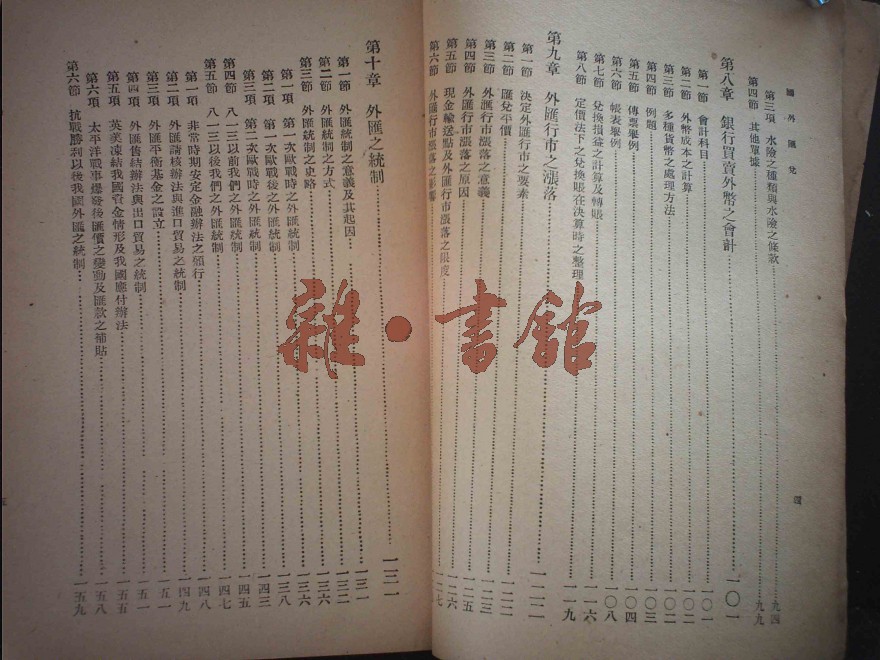 國外匯兌
四
第三項 水險之種類與水險之條款……九四
第四節 其他單據……九九
第八章 銀行買賣外幣之會計……一〇一
第一節 會計科目……一〇一
第二節 外幣成本之計算……一〇二
第三節 多種貨幣之處理方法……一〇二
第四節 例題……一〇三
第五節 傳票舉例……一〇四
第六節 帳表舉例……一〇八
第七節 兌換損益之計算及轉賬……一一六
第八節 定價法下之兌換賬在決算時之整理……一一九
第九章 外匯行市之漲落……一二一
第一節 決定外匯行市之要素……一二一
第二節 匯兌平價……一二二
第三節 外匯行市漲落之意義……一二三
第四節 外匯行市漲落之原因……一二五
第五節 現金輸送點及外匯行市漲落之限度……一二六
第六節 外匯行市漲落之影響……一二七
第十章 外匯之統制……一三一
第一節 外匯統制之意義及其起因……一三一
第二節 外匯統制之方式……一三二
第三節 外匯統制之史略……一三六
第一項 第一次歐戰時之外匯統制……一三六
第二項 第一次歐戰後之外匯統制……一三八
第三項 第二次歐戰時之外匯統制……一四三
第四節 八一三以前我們之外匯統制……一四五
第五節 八一三以後我們之外匯統制……一四七
第一項 非常時期安定金融辦法之頒行……一四八
第二項 外匯請核辦法與進口貿易之統制……一四九
第三項 外匯平衡基金之設立……一五一
第四項 外匯售結辦法與出口貿易之統制……一五一
第五項 英美凍結我國資金情形及我國應付辦法……一五五
第六項 太平洋戰事爆發後匯價之變動及匯款之補貼……一五八
第六節 抗戰勝利以後我國外匯之統制……一五九
雜·書館